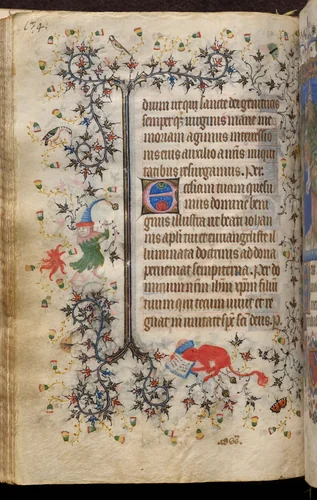 134
dium ut qui sancte dei genitricis
semperque virginis marie me
moriam agimus intercessio
nis eius auxilio a nris iniqui
tatibus resurgamus. Per.
Ecclesiam tuam quesu
mus domine beni
gnus illustra ut beati iohan
nis apli tui et euuangeliste il
luminata doctrinis ad dona
perveniat sempiterna. Per do
minum nrm ihm xpm filiu
tuum qui tecum vivit et re
gnat in unitate sps sci deus. P.